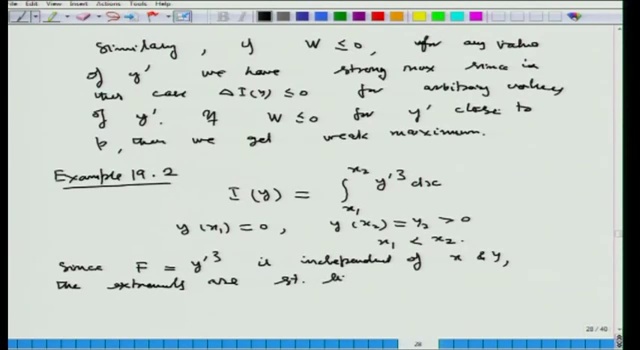 File Edit View Insert Actions Tools Help
Similarly, if W ≤ 0, for any value
of y' we have strong max since in
this case ΔI(y) ≤ 0 for arbitrary values
of y'. If W ≤ 0 for y' close to
p, then we get weak maximum.
Example 19.2
I(y) = ∫_{x₁}^{x₂} y'³ dx
y(x₁) = 0, y(x₂) = y₂ > 0
x₁ < x₂.
Since F = y'³ is independent of x & y,
the extremals are st. li
28 / 40
28